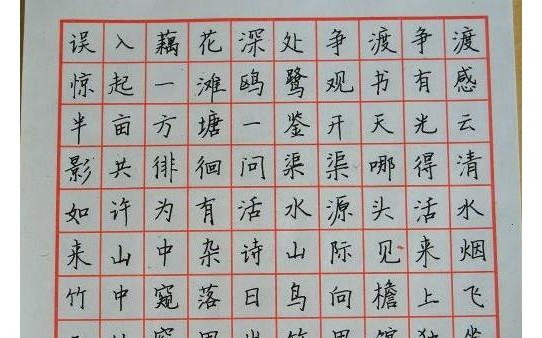 误入藕花深处争渡争渡
惊起一滩鸥鹭观书有感
半亩方塘一鉴开天光云
影共徘徊问渠渠哪得清
如许为有活水源头活水
来山中杂诗山际见来烟
竹中窥落日鸟向檐上飞